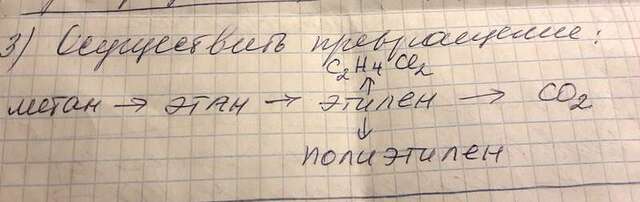 3) Осуществить превращение:
C₂H₄Cl₂
↑
метан → этан → этилен → CO₂
↓
полиэтилен